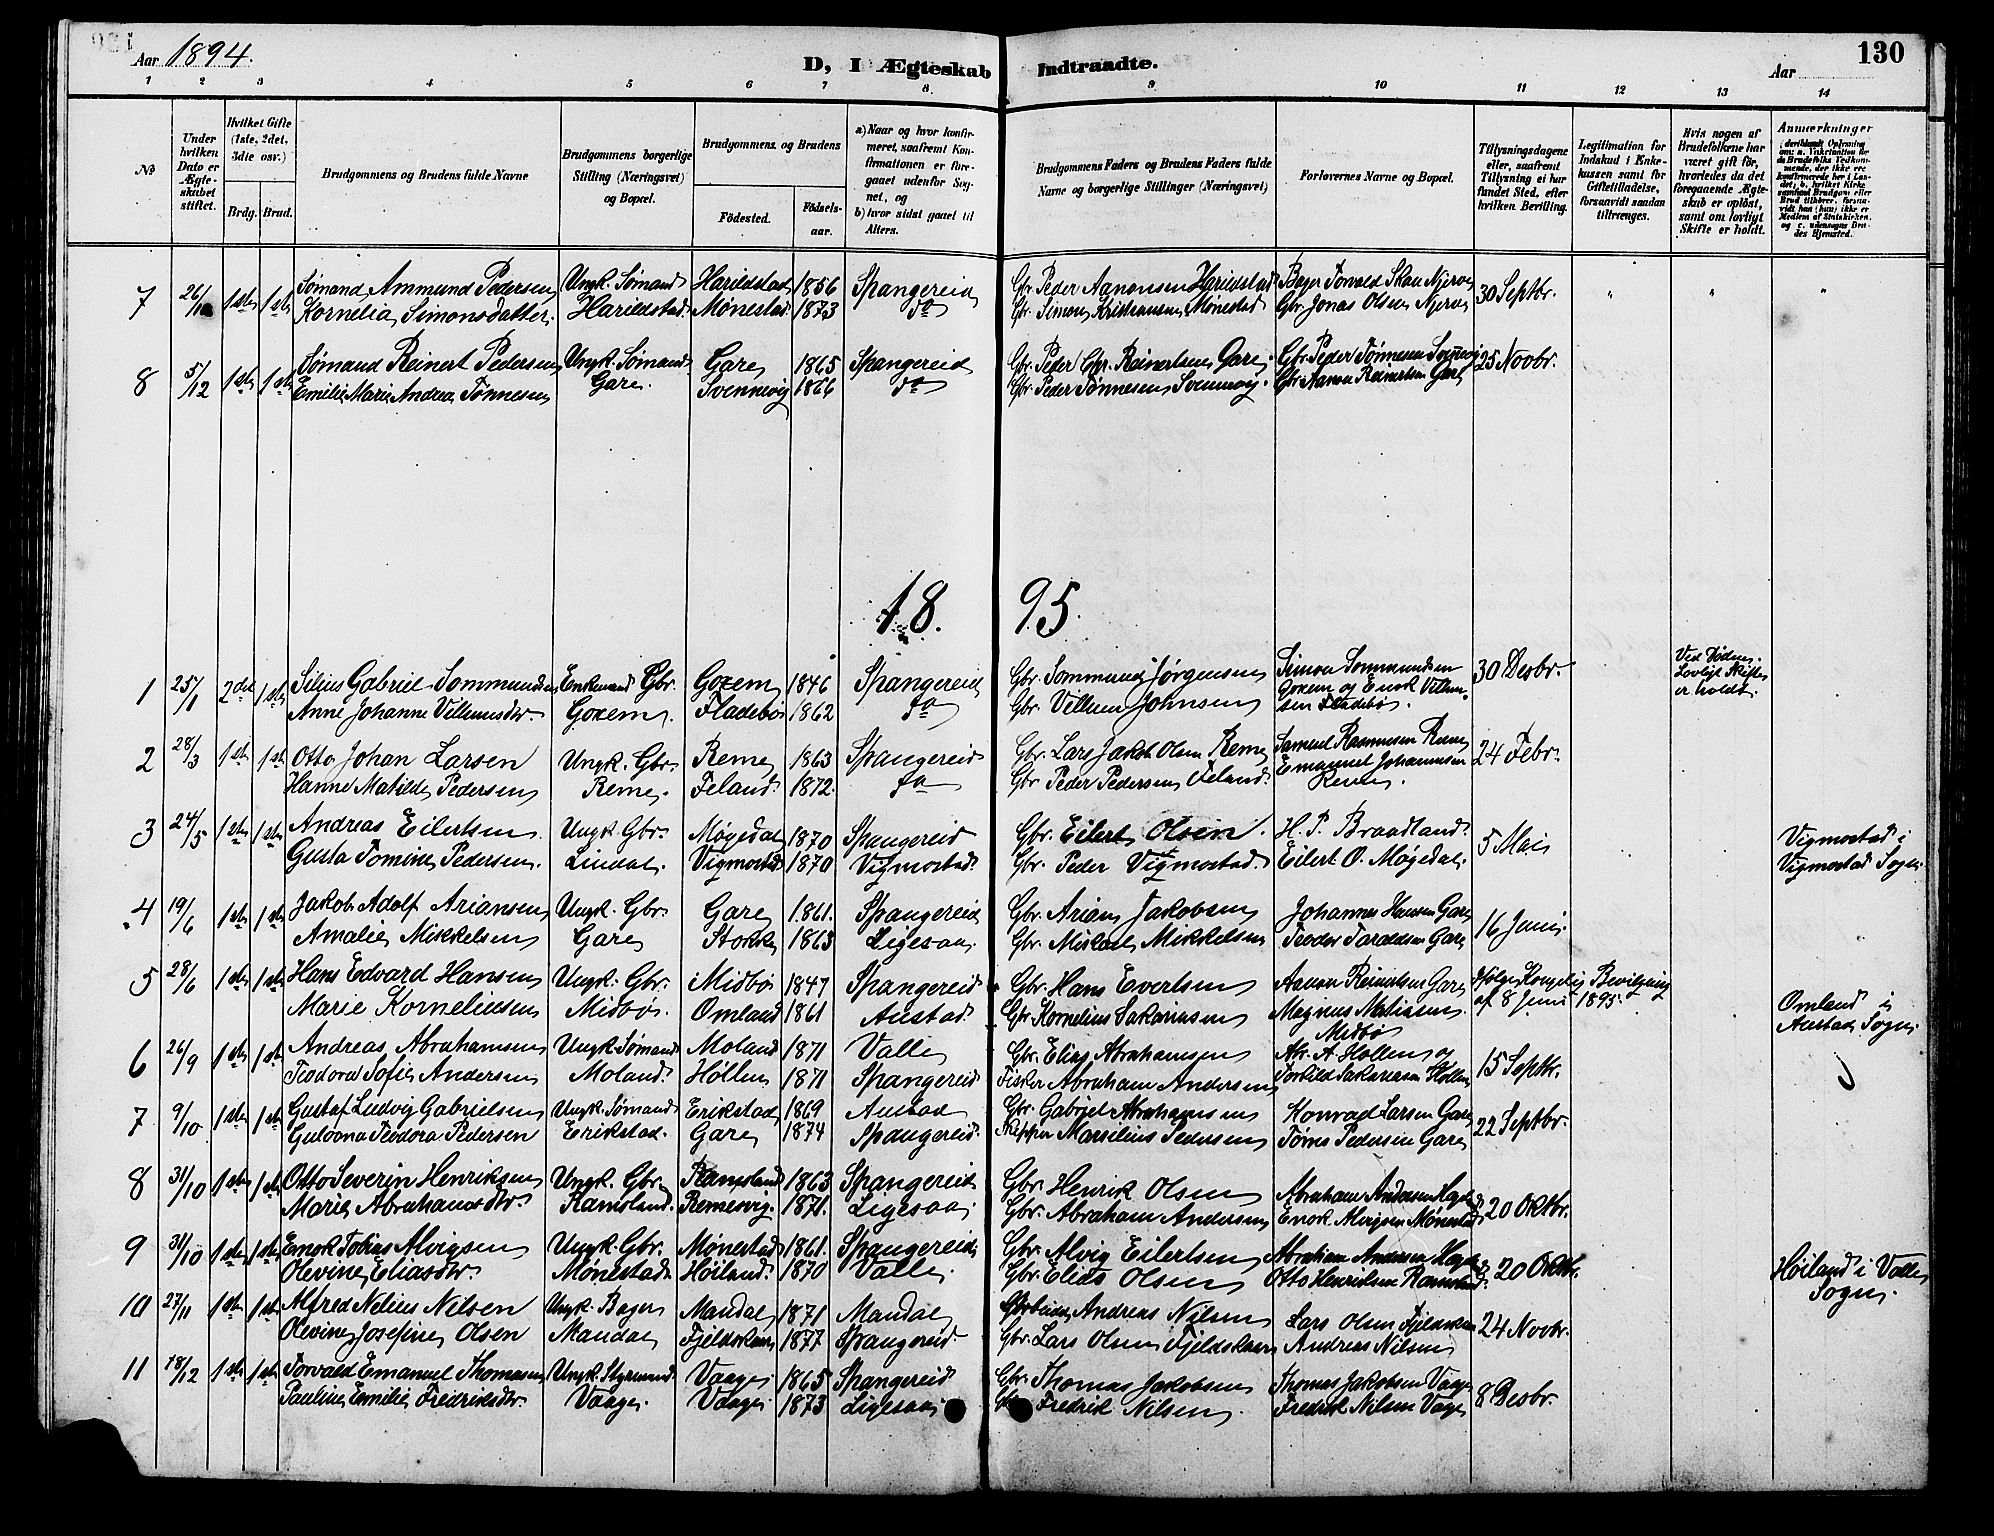 Aar 1894.
D, I Ægteskab Indtraadte.
130
Aar
1 2 3 4 5 6 7 8. 9 10 11 12 13 14
No
Under hvilken Dato er Ægteskabet stiftet.
Hvilket Gifte (1ste, 2det, 3die osv.)
Brdg. Brud.
Brudgommens og Brudens fulde Navne
Brudgommens borgerlige Stilling (Næringsvei) og Bopæl.
Brudgommens og Brudens
Födested.
Födselsaar.
a) Naar og hvor konfirmeret, saafremt Konfirmationen er foregaaet udenfor Sognet, og
b) hvor sidst gaaet til Alters.
Brudgommens Faders og Brudens Faders fulde Navne og borgerlige Stillinger (Næringsvei)
Forlovernes Navne og Bopæl.
Tillysningsdagene eller, saafremt Tillysning ei har fundet Sted, efter hvilken Bevilling.
Legitimation for Indskud i Enkekassen samt for Giftetilladelse, forsaavidt saadan tiltrænges.
Hvis nogen af Brudefolkene har været gift för, hvorledes da det foregaaende Ægteskab er oplöst, samt om lovligt Skifte er holdt.
Anmærkninger
7 26/10 1ste 1ste Sømand Ammund Pedersen Ungk. Sømand Harildstad 1856 Spangereid Gbr. Peder Aanensen Harildstad Bager Torvald Skau Njerve 30 Septbr. " " "
Kornelia Simonsdatter. Harildstad. Mønestad. 1873 do Gbr. Simon Kristiansen Mønestad Gbr Jonas Olsen Njerve
8 5/12 1ste 1ste Sømand Reinert Pedersen Ungk. Sømand Gare 1865 Spangereid Gbr. Peder Chr. Reinertsen Gare. Gbr. Peder Tønnesen Svennevig 25 Novbr.
Emilie Marie Andrea Tønnesen Gare. Svennevig 1866 do Gbr. Peder Tønnesen Svennevig. Gbr. Aanen Reinertsen Gare
18. 95.
1 25/1 2det 1ste Silius Gabriel Sommundsen Enkemand Gbr. Goxem 1846 Spangereid Gbr. Sommund Jørgensen Simon Sommundsen 30 Desbr. Ved Døden.
Goxem og Enok Villum- Lovligt Skifte
Anne Johanne Villumsdtr. Goxem. Fladebø 1862 do Gbr. Villum Johnsen sen Fladebø. er holdt.
2 28/3 1ste 1ste Otto Johan Larsen Ungk. Gbr. Reme 1863 Spangereid Gbr. Lars Jakob Olsen Reme Samuel Rasmussen Reme 24 Febr.
Hanne Matilde Pedersen Reme. Feland. 1872. do Gbr. Peder Pedersen Feland. Emanuel Johannesen Reme.
3 24/5 1ste 1ste Andreas Eilertsen Ungk. Gbr. Møgedal 1870 Spangereid Gbr. Eilert Olsen. H. P. Braadland. 5 Mai Vigmostad i
Gusta Tomine Pedersen. Lindal. Vigmostad 1870 Vigmostad. Gbr. Peder Vigmostad. Eilert O. Møgedal. Vigmostad Sogn.
4 19/6 1ste 1ste Jakob Adolf Ariansen Ungk. Gbr. Gare 1861. Spangereid Gbr. Arian Jakobsen Johannes Hansen Gare 16 Juni.
Amalie Mikkelsen Gare Stokke 1863 Ligesaa. Gbr. Mikael Mikkelsen Teodor Taraldsen Gare
5 28/6 1ste 1ste Hans Edvard Hansen Ungk. Gbr. Midbø 1847 Spangereid Gbr. Hans Evertsen Aanen Reinertsen Gare Ifølge Kongelig Bevilgning Omland i
Marie Korneliussen Midbø. Omland 1861 Austad. Gbr. Kornelius Sakariasen Magnus Matiasen Midbø af 8 Juni 1895. Austad Sogn.
6 26/9 1ste 1ste Andreas Abrahamsen Ungk. Sømand Moland 1871 Valle Gbr. Elias Abrahamsen Abr. A. Høllen og 15 Septbr.
Teodora Sofie Andersen Moland. Høllen 1871 Spangereid Fisker Abraham Andersen Torkild Sakariasen Høllen
7 9/10 1ste 1ste Gustaf Ludvig Gabrielsen Ungk. Sømand Erikstad 1869 Austad Gbr. Gabriel Abrahamsen Konrad Larsen Gare 22 Septbr.
Gulovna Teodora Pedersen Erikstad. Gare 1874 Spangereid. Skipper Marselius Pedersen Tørres Pedersen Gare
8 31/10 1ste 1ste Otto Severin Henriksen Ungk. Gbr. Ramsland 1863 Spangereid Gbr. Henrik Olsen Abraham Andersen 20 Oktbr.
Marie Abrahamsdtr. Ramsland. Remesvig. 1871. Ligesaa. Gbr. Abraham Andersen Enok Alvigsen Mønestad
9 31/10 1ste 1ste Enok Tobias Alvigsen Ungk. Gbr. Mønestad 1861. Spangereid Gbr. Alvig Eilertsen Abraham Andersen 20 Oktbr. Høiland i Valle
Olevine Eliasdtr. Mønestad Høiland. 1870 Valle. Gbr. Elias Olsen Otto Henriksen Ramsland Sogn.
10 27/11 1ste 1ste Alfred Nelius Nilsen Ungk. Bager Mandal 1871 Mandal Arbeider Andreas Nilsen Lars Olsen Fjeldskaar 24 Novbr.
Olevine Josefine Olsen Mandal Fjeldskaar 1877 Spangereid. Gbr. Lars Olsen Fjeldskaar Andreas Nilsen
11 18/12 1ste 1ste Torvald Emanuel Thomasen Ungk. Styrmand Vaage. 1865 Spangereid Gbr. Thomas Jakobsen Thomas Jakobsen Vaage 8 Desbr.
Pauline Emilie Fredriksdtr. Vaage. Vaage. 1873 Ligesaa. Gbr. Fredrik Nilsen. Fredrik Nilsen Vaage